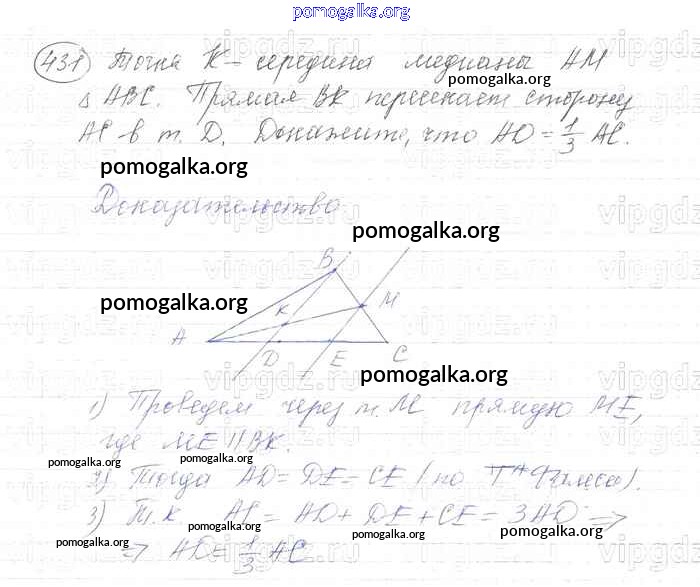 pomogalka.org
431 Точка K - середина медианы AM
pomogalka.org
Δ ABC. Прямая BK пересекает сторону
AC в т. D. Докажите, что AD = 1/3 AC.
pomogalka.org pomogalka.org
Доказательство
pomogalka.org
B
pomogalka.org
K M
A D E C
pomogalka.org
1) Проведем через т. M прямую ME,
где ME || BK.
pomogalka.org pomogalka.org
2) Тогда AD = DE = CE (по т. Фалеса).
3) Т.к. AC = AD + DE + CE = 3AD =>
pomogalka.org pomogalka.org
=> AD = 1/3 AC
pomogalka.org pomogalka.org